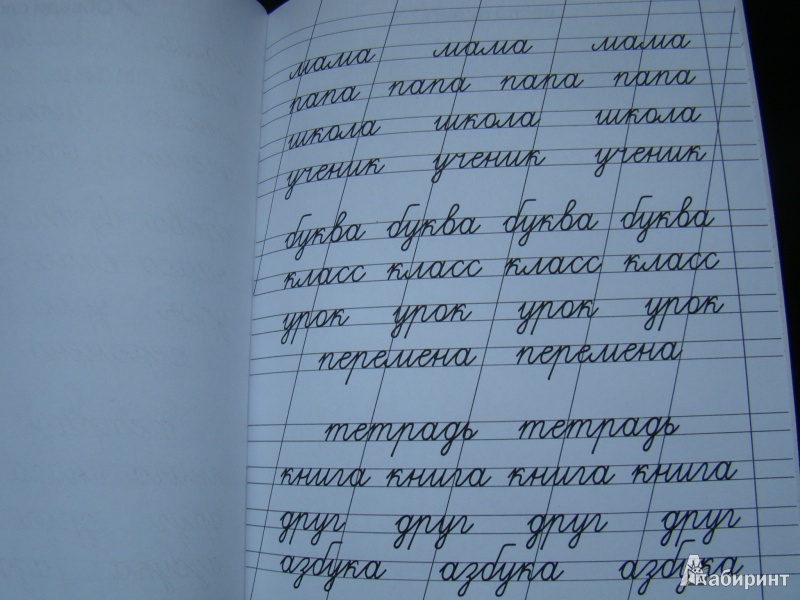 мама мама мама
папа папа папа папа
школа школа школа
ученик ученик ученик
буква буква буква буква
класс класс класс класс
урок урок урок урок
перемена перемена
тетрадь тетрадь
книга книга книга книга
друг друг друг друг
азбука азбука азбука
Лабиринт